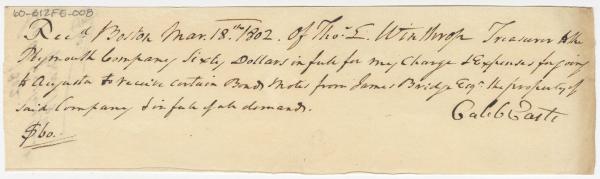 60-612FE-008
Rec.d Boston Mar. 18.th 1802. Of Tho.s L. Winthrop Treasurer to the
Plymouth Company Sixty Dollars in full for my Charge & Expenses for going
to Augusta to receive certain Bonds & Notes from James Bridge Esq.r the property of
said Company & in full of all demands.
Caleb
$60.